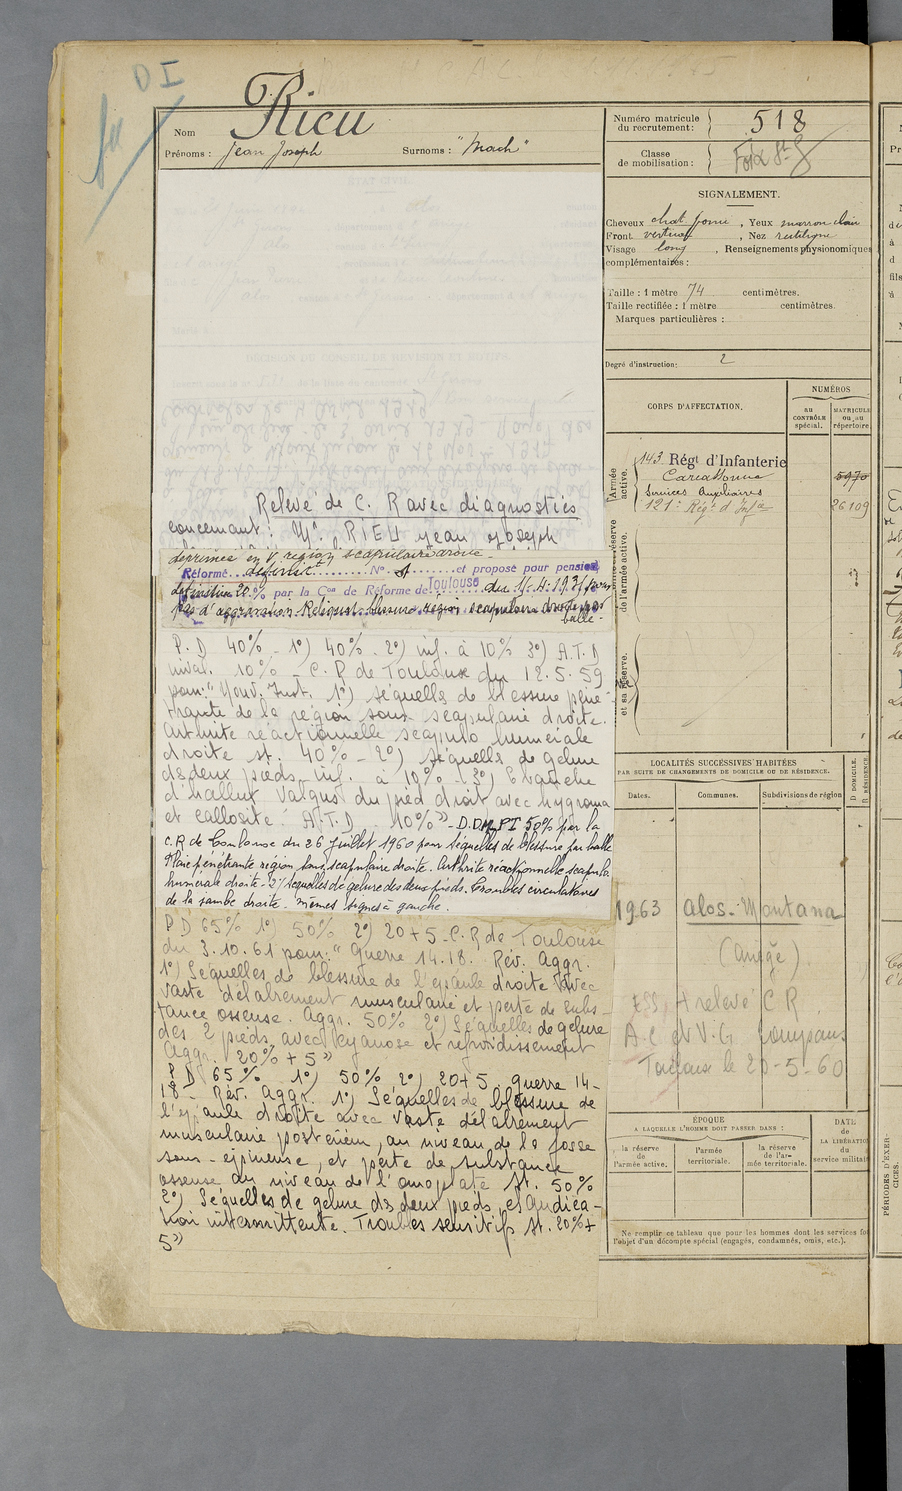 D I
Nom Rieu
Prénoms : Jean Joseph Surnoms : "Mach"
Relevé de C. R avec diagnostics
concernant : Mr RIEU Jean Joseph
déprimée en V region scapulaire droite -
Réformé définit.t N° 1 et proposé pour pension
définitive 20 % par la Con de Réforme de Toulouse du 16.4.1931 pour
pas d'aggravation Reliquat blessure region scapulaire droite par
balle -
P.D 40% - 1°) 40% - 2°) inf. à 10% 3°) A.T.D
inval. 10% - C.R de Toulouse du 12.5.59
pour : " Nouv. Inst. 1°) séquelles de blessure péné-
trante de la région sous scapulaire droite.
Arthrite réactionnelle scapulo humérale
droite st. 40% - 2°) séquelles de gelure
des deux pieds inf. à 10% - 3°) Ebauche
d'hallux valgus du pied droit avec hygroma
et callosité. A.T.D 10% " - D.D. PI 50% par la
C.R de Toulouse du 26 Juillet 1960 pour séquelles de blessure par balle
Plaie pénétrante région sous scapulaire droite. Arthrite réactionnelle scapulo
humérale droite - 2°/ séquelles de gelure des deux pieds. Troubles circulatoires
de la jambe droite. Mêmes signes à gauche.
P D 65% 1°) 50% 2°) 20 + 5 - C.R de Toulouse
du 3.10.61 pour : " Guerre 14.18. Rév. Aggr.
1°) Séquelles de blessure de l'épaule droite avec
vaste délabrement musculaire et perte de subs-
tance osseuse. Aggr. 50% 2°) Séquelles de gelure
des 2 pieds avec kyanose et refroidissement
Aggr. 20% + 5 "
P D 65% 1°) 50% 2°) 20+5 guerre 14-
18 - Rév. Aggr. 1°) Séquelles de blessure de
l'épaule droite avec vaste délabrement
musculaire postérieur, au niveau de la fosse
sous-épineuse, et perte de substance
osseuse au niveau de l'omoplate st. 50%
2°) Séquelles de gelure des deux pieds, claudica-
tion intermittente. Troubles sensitifs st. 20% +
5 "
Numéro matricule
du recrutement : 518
Classe
de mobilisation : Foix St G
SIGNALEMENT.
Cheveux chat. foncé , Yeux marron clair
Front vertical , Nez rectiligne
Visage long , Renseignements physionomiques
complémentaires :
Taille : 1 mètre 74 centimètres.
Taille rectifiée : 1 mètre centimètres.
Marques particulières :
Degré d'instruction : 2
CORPS D'AFFECTATION.
NUMÉROS
au
CONTRÔLE
spécial.
MATRICULE
ou au
répertoire.
Armée
active.
143 Régt d'Infanterie
Carcassonne 5970
Services Auxiliaires
121e Régt d'Infie 26109
réserve
de l'armée active.
et sa réserve.
LOCALITÉS SUCCESSIVES HABITÉES
PAR SUITE DE CHANGEMENTS DE DOMICILE OU DE RÉSIDENCE.
Dates.
Communes.
Subdivisions de région
D DOMICILE.
R RÉSIDENCE
1963 Alos - Montana
(Ariège)
relevé C R
A.C et V.G Compans
Toulouse le 20-5-60
ÉPOQUE
A LAQUELLE L'HOMME DOIT PASSER DANS :
la réserve
de
l'armée active.
l'armée
territoriale.
la réserve
de l'ar-
mée territoriale.
DATE
de
LA LIBÉRATION
du
service militaire
Ne remplir ce tableau que pour les hommes dont les services
l'objet d'un décompte spécial (engagés, condamnés, omis, etc.).
PÉRIODES D'EXER-
CICES.